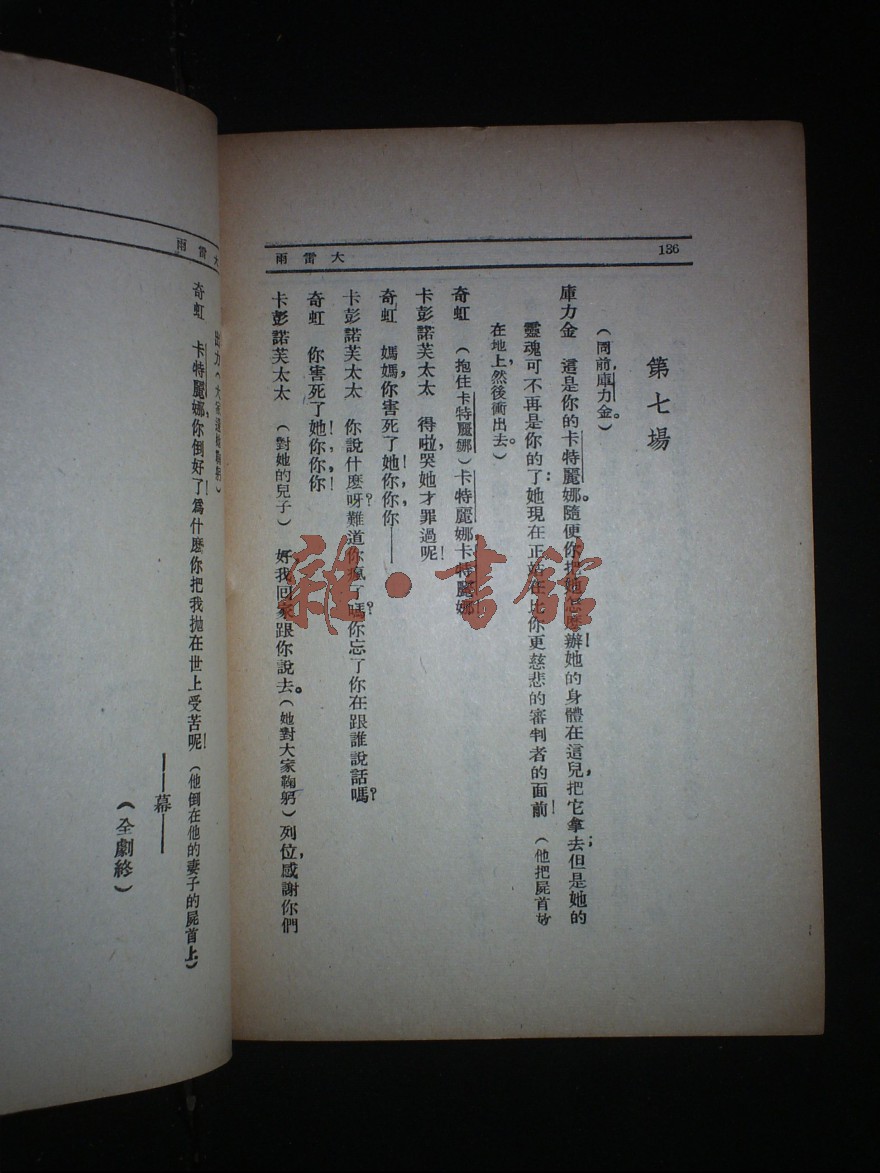 136
大雷雨
第七場
（同前，庫力金。）
庫力金　這是你的卡特麗娜。隨便你把她怎麼辦！她的身體在這兒，把它拿去；但是她的
靈魂可不再是你的了：她現在正站在比你更慈悲的審判者的面前！（他把屍首放
在地上，然後衝出去。）
奇虹　（抱住卡特麗娜）卡特麗娜，卡特麗娜！
卡彭諾芙太太　得啦，哭她才罪過呢！
奇虹　媽媽，你害死了她！你，你，你——
卡彭諾芙太太　你說什麼呀？難道你瘋了嗎？你忘了你在跟誰說話嗎？
奇虹　你害死了她！你，你，你！
卡彭諾芙太太　（對她的兒子）好，我回家跟你說去。（她對大家鞠躬）列位，感謝你們
大雷雨
出力（大家還她鞠躬）
奇虹　卡特麗娜，你倒好了！爲什麽你把我拋在世上受苦呢！（他倒在他的妻子的屍首上）
——幕——
（全劇終）
雜·書館